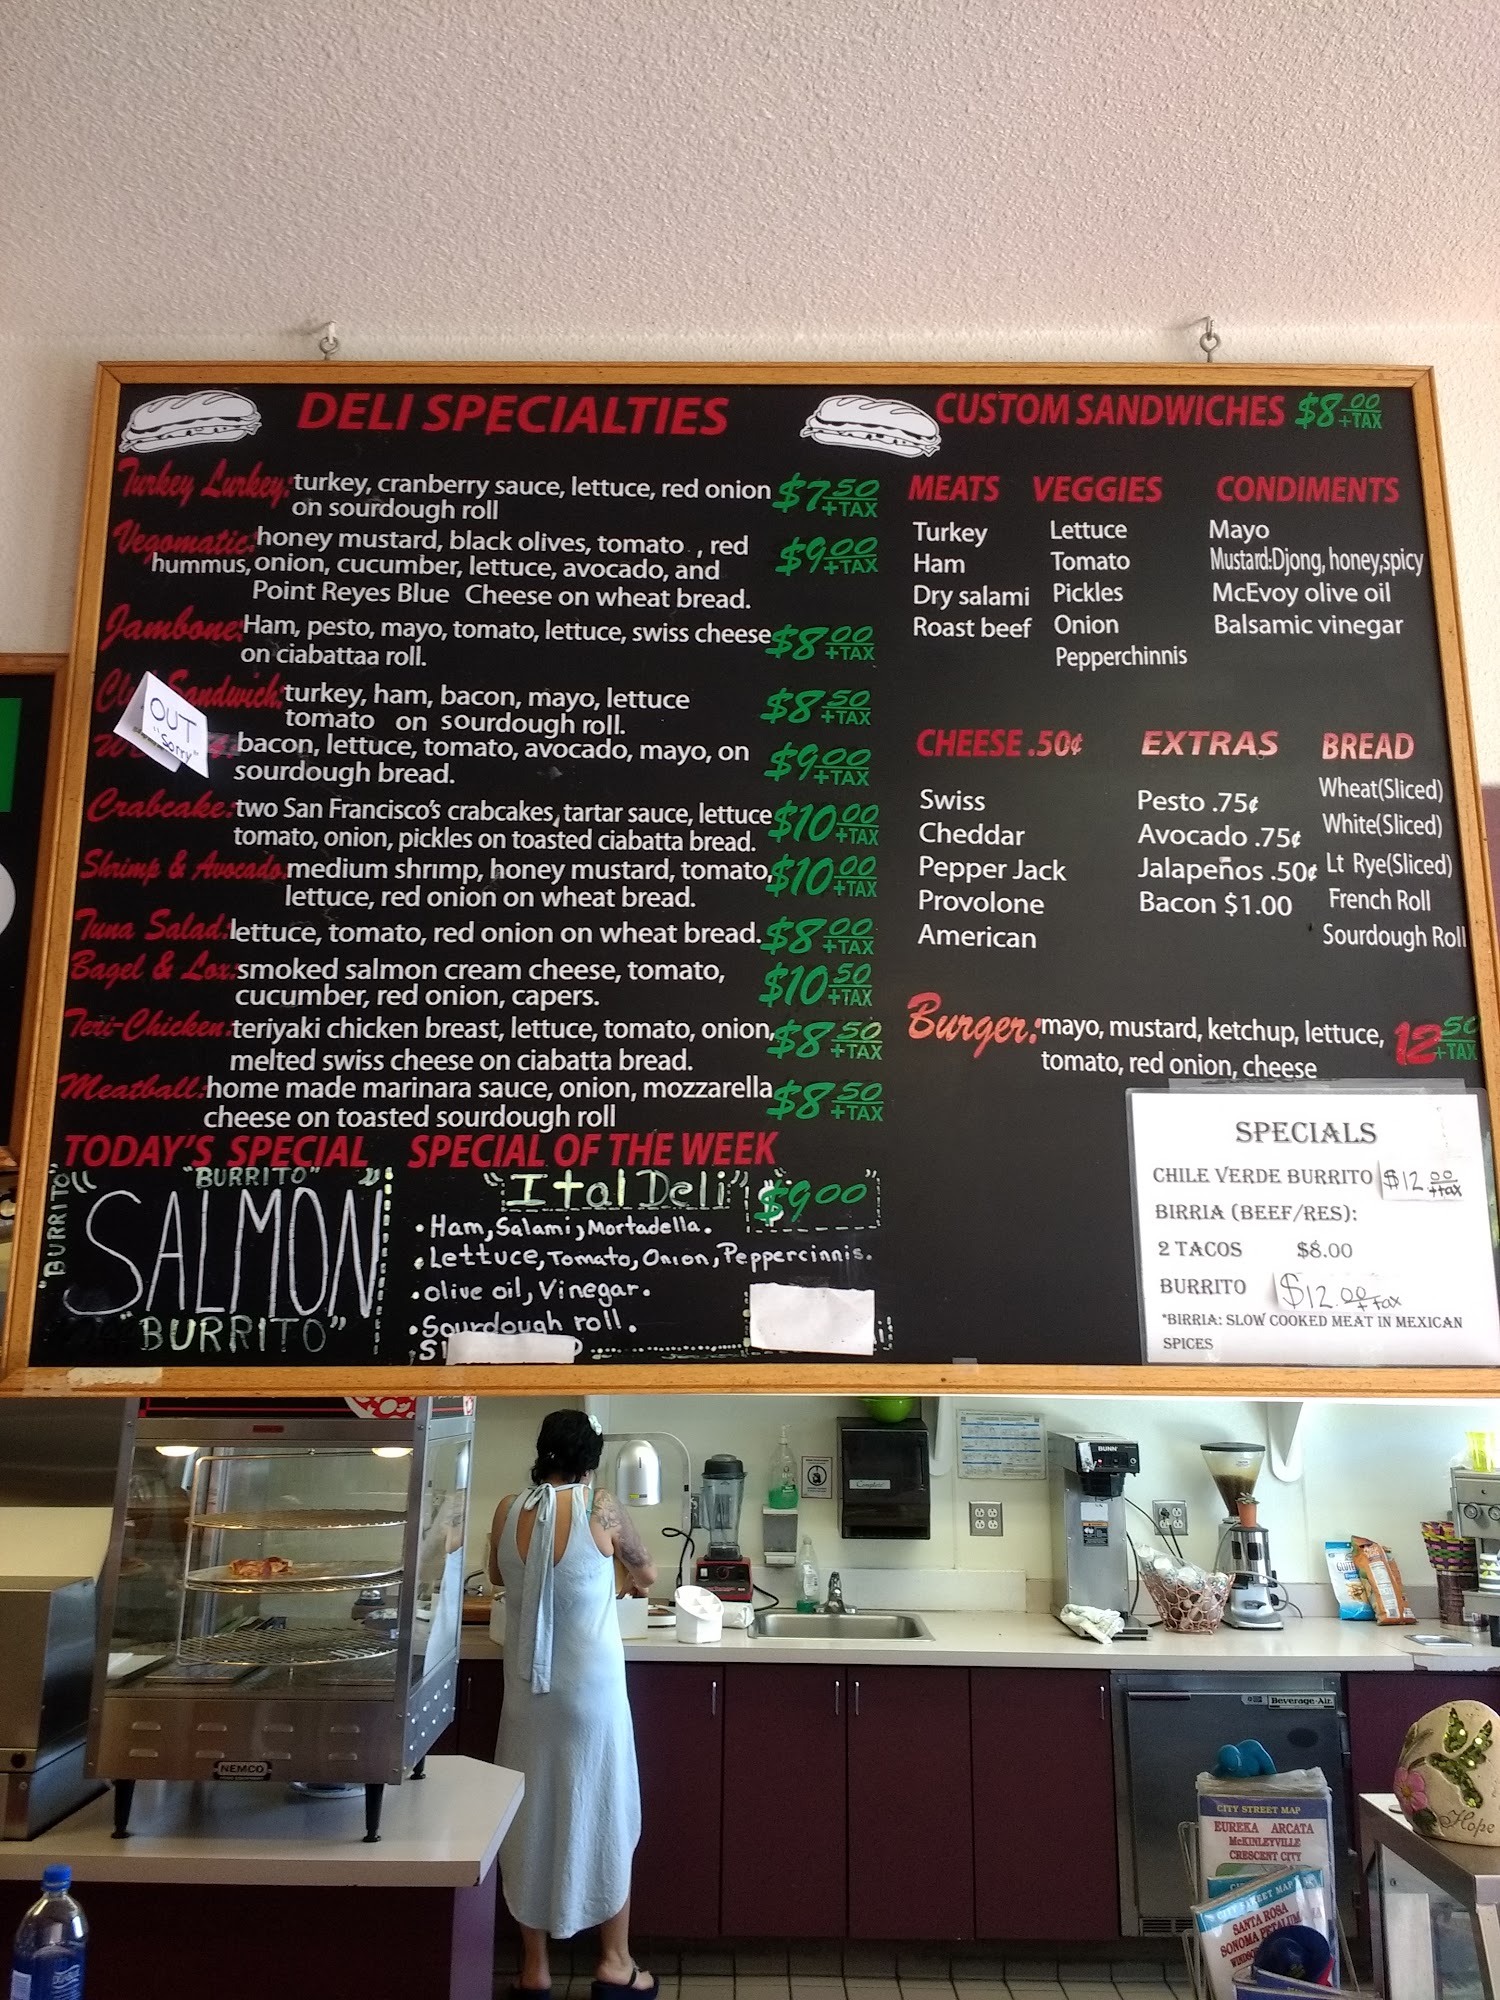 DELI SPECIALTIES
Turkey Lurkey: turkey, cranberry sauce, lettuce, red onion $7.50 +TAX
on sourdough roll
Vegomatic: honey mustard, black olives, tomato , red $9.00 +TAX
hummus, onion, cucumber, lettuce, avocado, and
Point Reyes Blue Cheese on wheat bread.
Jambone: Ham, pesto, mayo, tomato, lettuce, swiss cheese $8.00 +TAX
on ciabattaa roll.
Sandwich: turkey, ham, bacon, mayo, lettuce $8.50 +TAX
tomato on sourdough roll.
OUT
"Sorry"
bacon, lettuce, tomato, avocado, mayo, on $9.00 +TAX
sourdough bread.
Crabcake: two San Francisco's crabcakes, tartar sauce, lettuce $10.00 +TAX
tomato, onion, pickles on toasted ciabatta bread.
Shrimp & Avocado: medium shrimp, honey mustard, tomato, $10.00 +TAX
lettuce, red onion on wheat bread.
Tuna Salad: lettuce, tomato, red onion on wheat bread. $8.00 +TAX
Bagel & Lox: smoked salmon cream cheese, tomato, $10.50 +TAX
cucumber, red onion, capers.
Teri-Chicken: teriyaki chicken breast, lettuce, tomato, onion, $8.50 +TAX
melted swiss cheese on ciabatta bread.
Meatball: home made marinara sauce, onion, mozzarella $8.50 +TAX
cheese on toasted sourdough roll
TODAY'S SPECIAL
"BURRITO"
"BURRITO"
SALMON
"BURRITO"
SPECIAL OF THE WEEK
"Ital Deli" $9.00
• Ham, Salami, Mortadella.
• Lettuce, Tomato, Onion, Peppercinnis.
• olive oil, Vinegar.
• Sourdough roll.
CUSTOM SANDWICHES $8.00 +TAX
MEATS
Turkey
Ham
Dry salami
Roast beef
VEGGIES
Lettuce
Tomato
Pickles
Onion
Pepperchinnis
CONDIMENTS
Mayo
Mustard:Djong, honey,spicy
McEvoy olive oil
Balsamic vinegar
CHEESE .50¢
Swiss
Cheddar
Pepper Jack
Provolone
American
EXTRAS
Pesto .75¢
Avocado .75¢
Jalapeños .50¢
Bacon $1.00
BREAD
Wheat(Sliced)
White(Sliced)
Lt Rye(Sliced)
French Roll
Sourdough Roll
Burger: mayo, mustard, ketchup, lettuce, 12.50 +TAX
tomato, red onion, cheese
SPECIALS
CHILE VERDE BURRITO $12.00 +tax
BIRRIA (BEEF/RES):
2 TACOS $8.00
BURRITO $12.00 +tax
*BIRRIA: SLOW COOKED MEAT IN MEXICAN
SPICES
BUNN
NEMCO
Beverage-Air
CITY STREET MAP
EUREKA ARCATA
McKINLEYVILLE
CRESCENT CITY
CITY STREET MAP
SANTA ROSA
SONOMA PETALUMA
Hope